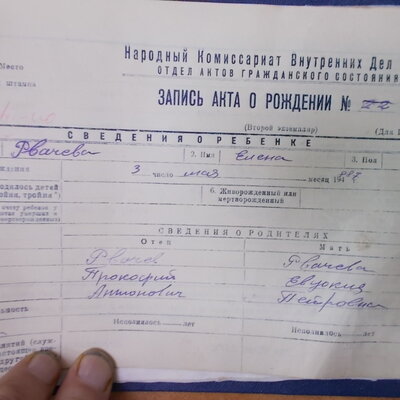 Место
штампа
Народный Комиссариат Внутренних Дел
ОТДЕЛ АКТОВ ГРАЖДАНСКОГО СОСТОЯНИЯ
ЗАПИСЬ АКТА О РОЖДЕНИИ № 22
(Второй экземпляр)
СВЕДЕНИЯ О РЕБЕНКЕ
Рвачева 2. Имя Елена 3. Пол
3 число мая месяц 194
6. Живорожденный или
мертворожденный
СВЕДЕНИЯ О РОДИТЕЛЯХ
Отец Мать
Рвачев Рвачева
Прокофий Евдокия
Антонович Петровна
Исполнилось лет Исполнилось лет